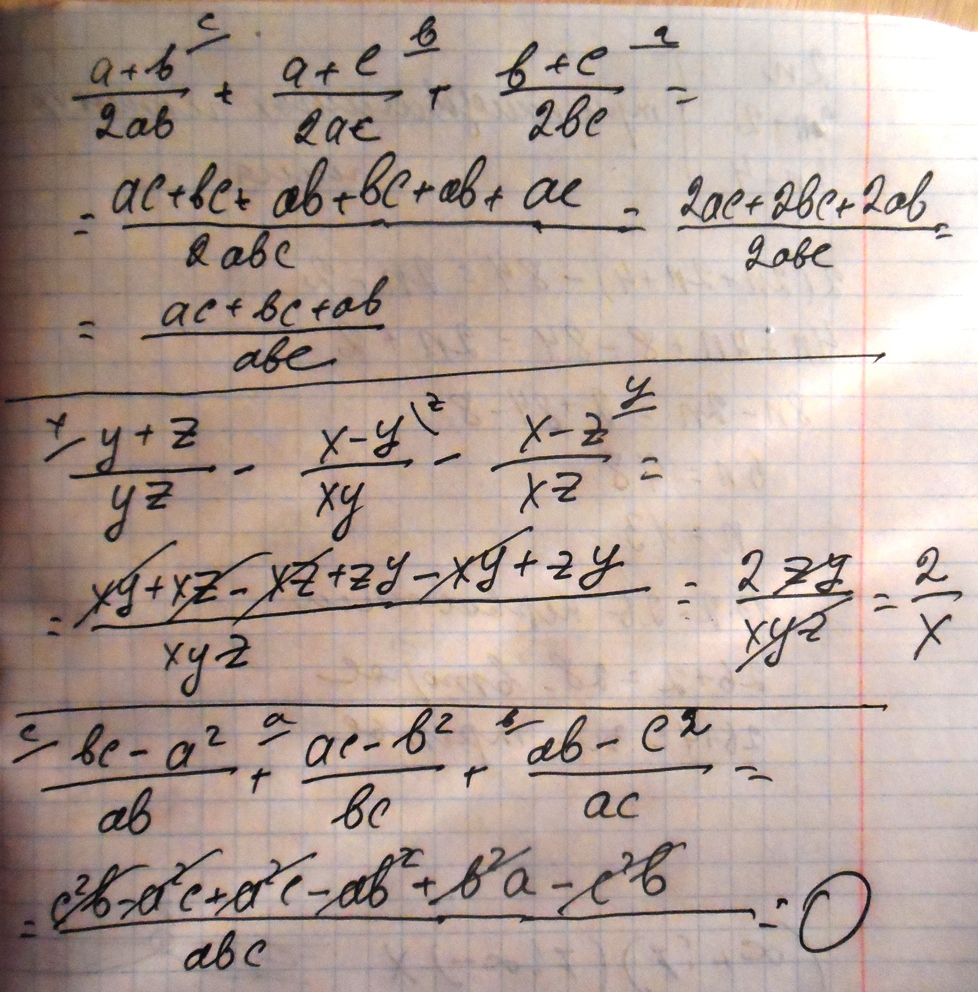 (a+b)/(2ab) ^c + (a+c)/(2ac) ^b + (b+c)/(2bc) ^a =
= (ac+bc+ab+bc+ab+ac)/(2abc) = (2ac+2bc+2ab)/(2abc) =
= (ac+bc+ab)/(abc)
^x (y+z)/(yz) - (x-y)/(xy) ^z - (x-z)/(xz) ^y =
= (xy+xz-xz+zy-xy+zy)/(xyz) = (2zy)/(xyz) = 2/x
^c (bc-a²)/(ab) + ^a (ac-b²)/(bc) + ^b (ab-c²)/(ac) =
= (c²b-a²c+a²c-ab²+b²a-c²b)/(abc) = 0